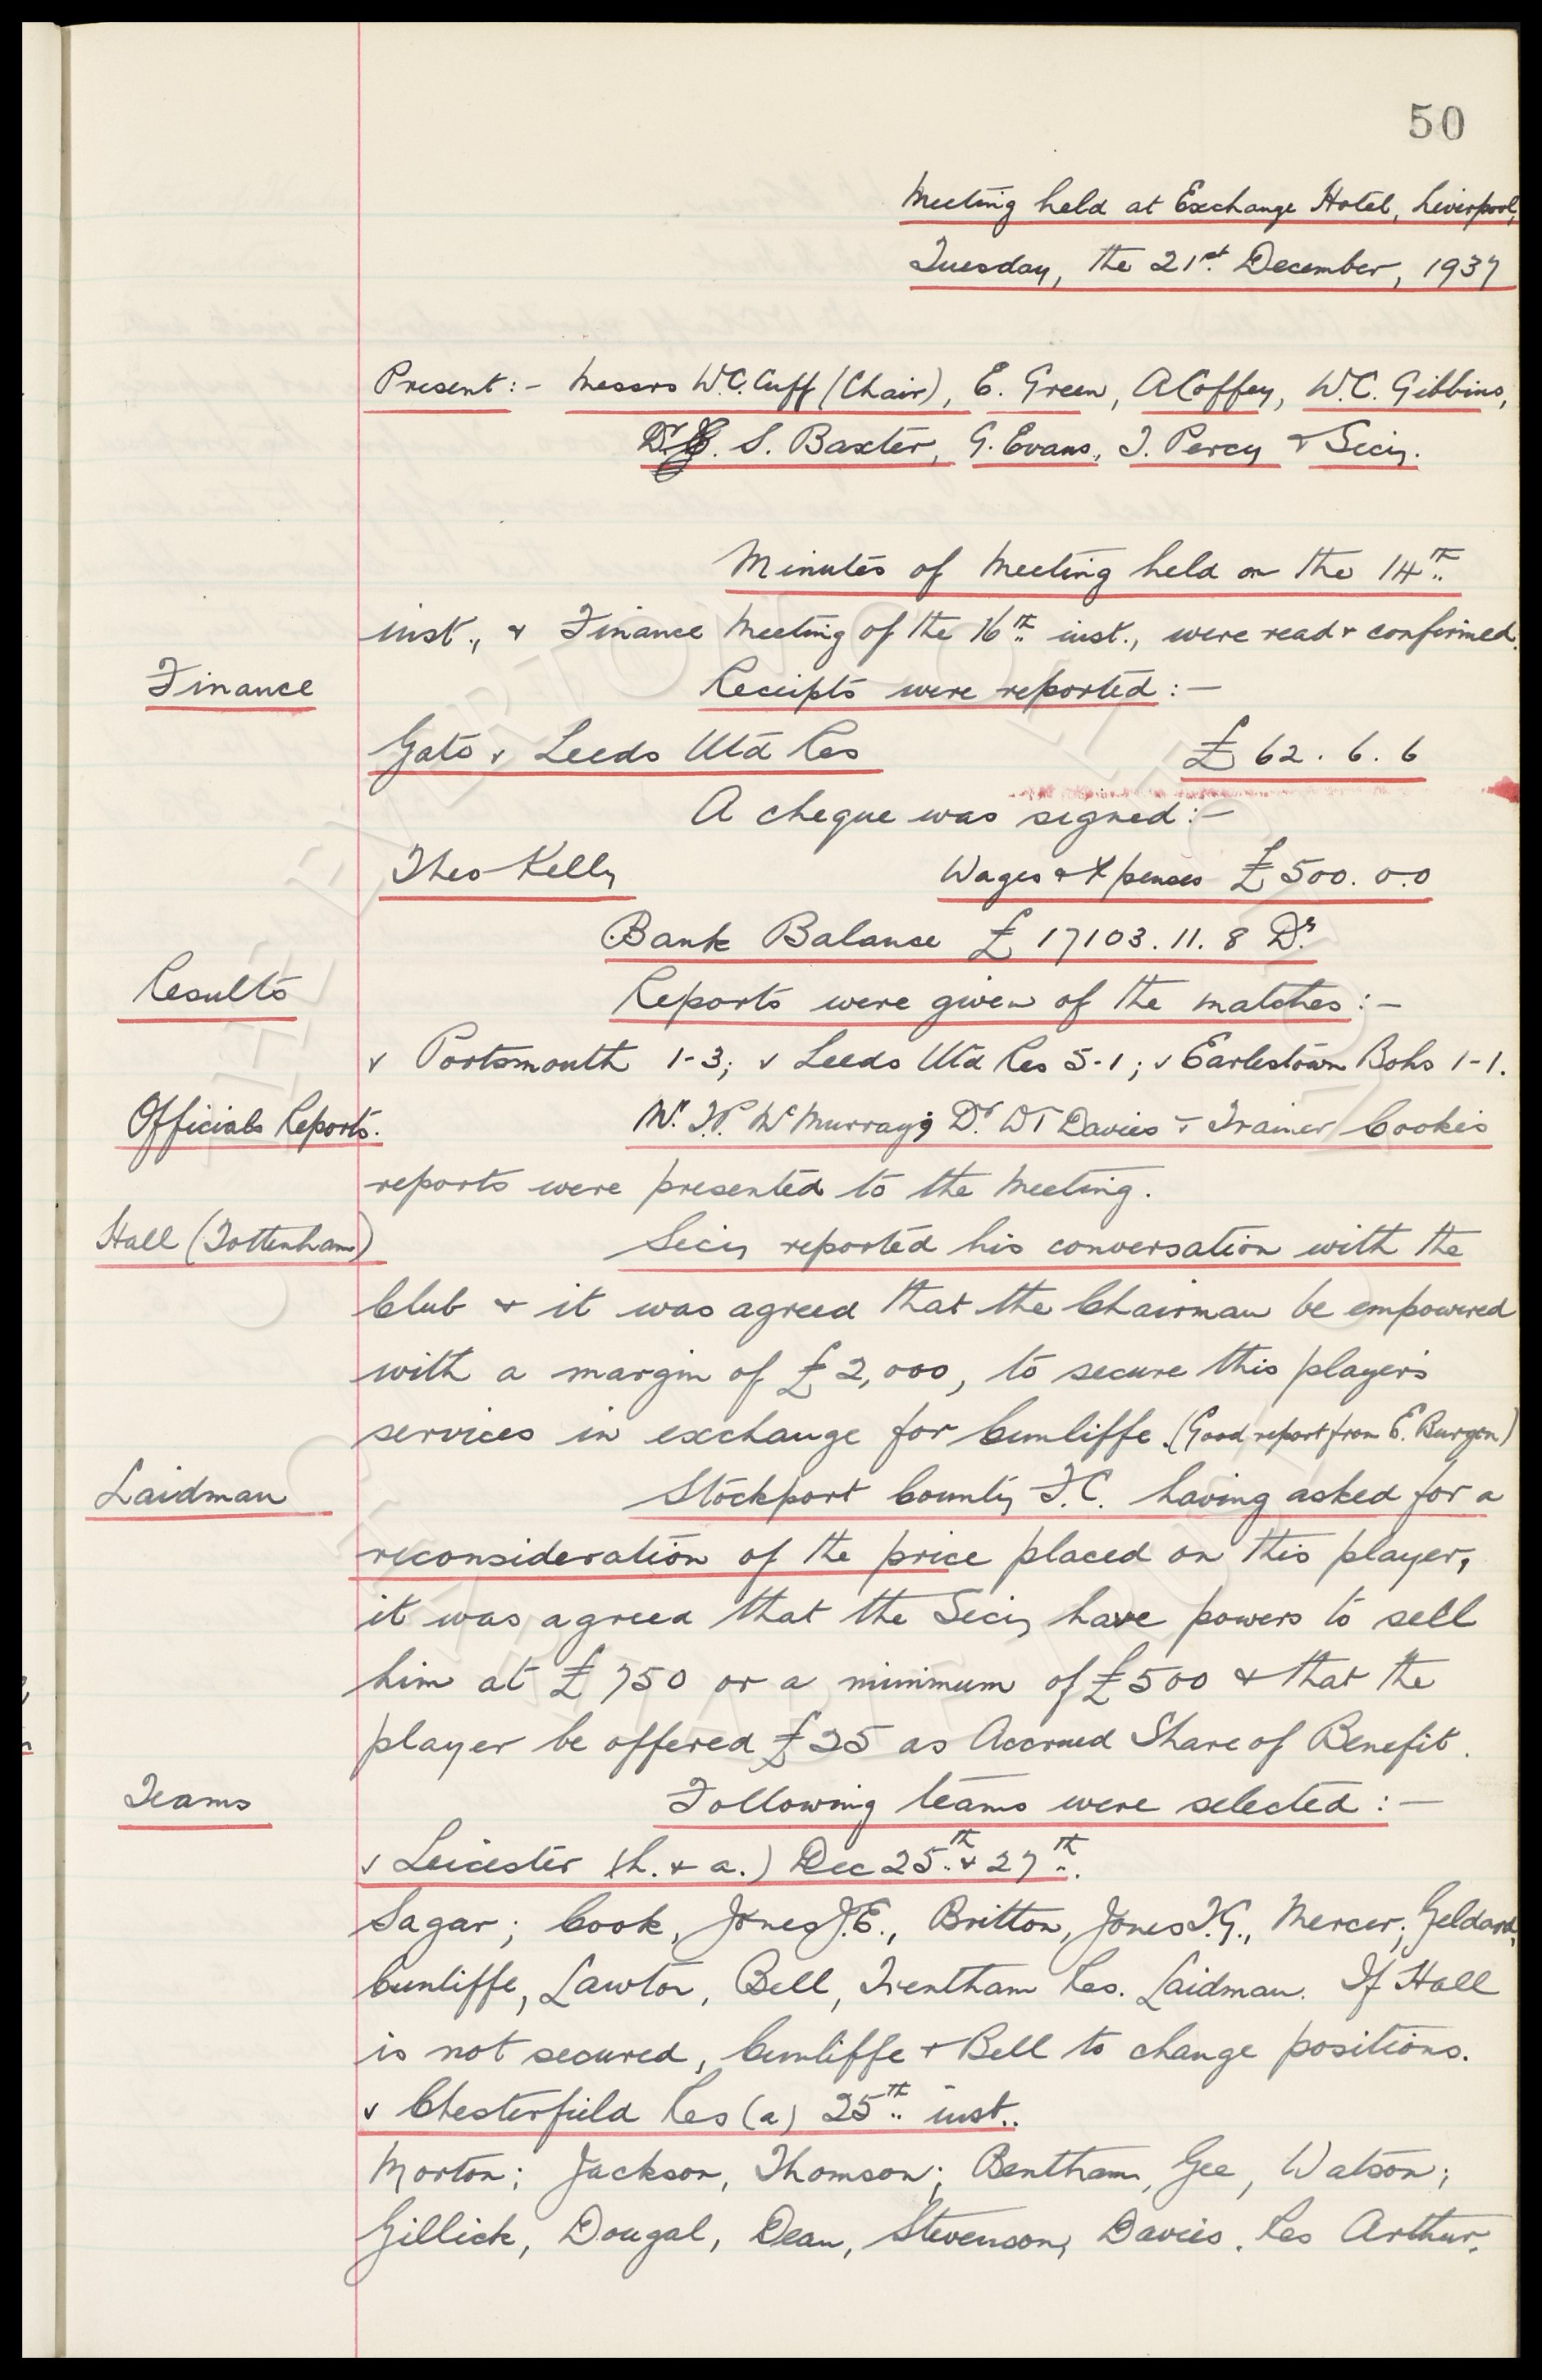 50
Meeting held at Exchange Hotel, Liverpool,
Tuesday, the 21st December, 1937
Present:- Messrs W.C. Cuff (Chair), E. Green, A Coffey, W.C. Gibbins,
Dr. S. Baxter, G. Evans, T. Percy & Secy.
Minutes of Meeting held on the 14th
inst., & Finance Meeting of the 16th inst., were read & confirmed.
Finance Receipts were reported:-
Gate v Leeds Utd Res £62.6.6
A cheque was signed:-
Theo Kelly Wages & Xpenses £500.0.0
Bank Balance £17103.11.8 Dr.
Results Reports were given of the matches:-
v Portsmouth 1-3; v Leeds Utd Res 5-1; v Earlestown Bohs 1-1.
Officials Reports. Mr. McMurray, Dr. DT Davies & Trainer Cooke's
reports were presented to the Meeting.
Hall (Tottenham) Secy reported his conversation with the
Club & it was agreed that the Chairman be empowered
with a margin of £2,000, to secure this player's
services in exchange for Cunliffe. (Good report from E. Burgon)
Laidman Stockport County F.C. having asked for a
reconsideration of the price placed on this player,
it was agreed that the Secy have powers to sell
him at £750 or a minimum of £500 & that the
player be offered £25 as Accrued Share of Benefit.
Teams Following teams were selected:-
v Leicester (h. & a.) Dec 25th & 27th.
Sagar; Cook, Jones J.E., Britton, Jones T.G., Mercer; Geldard,
Cunliffe, Lawton, Bell, Trentham Res. Laidman. If Hall
is not secured, Cunliffe & Bell to change positions.
v Chesterfield Res (a) 25th inst..
Morton; Jackson, Thomson; Bentham, Gee, Watson;
Gillick, Dougal, Dean, Stevenson, Davies. Res Arthur.